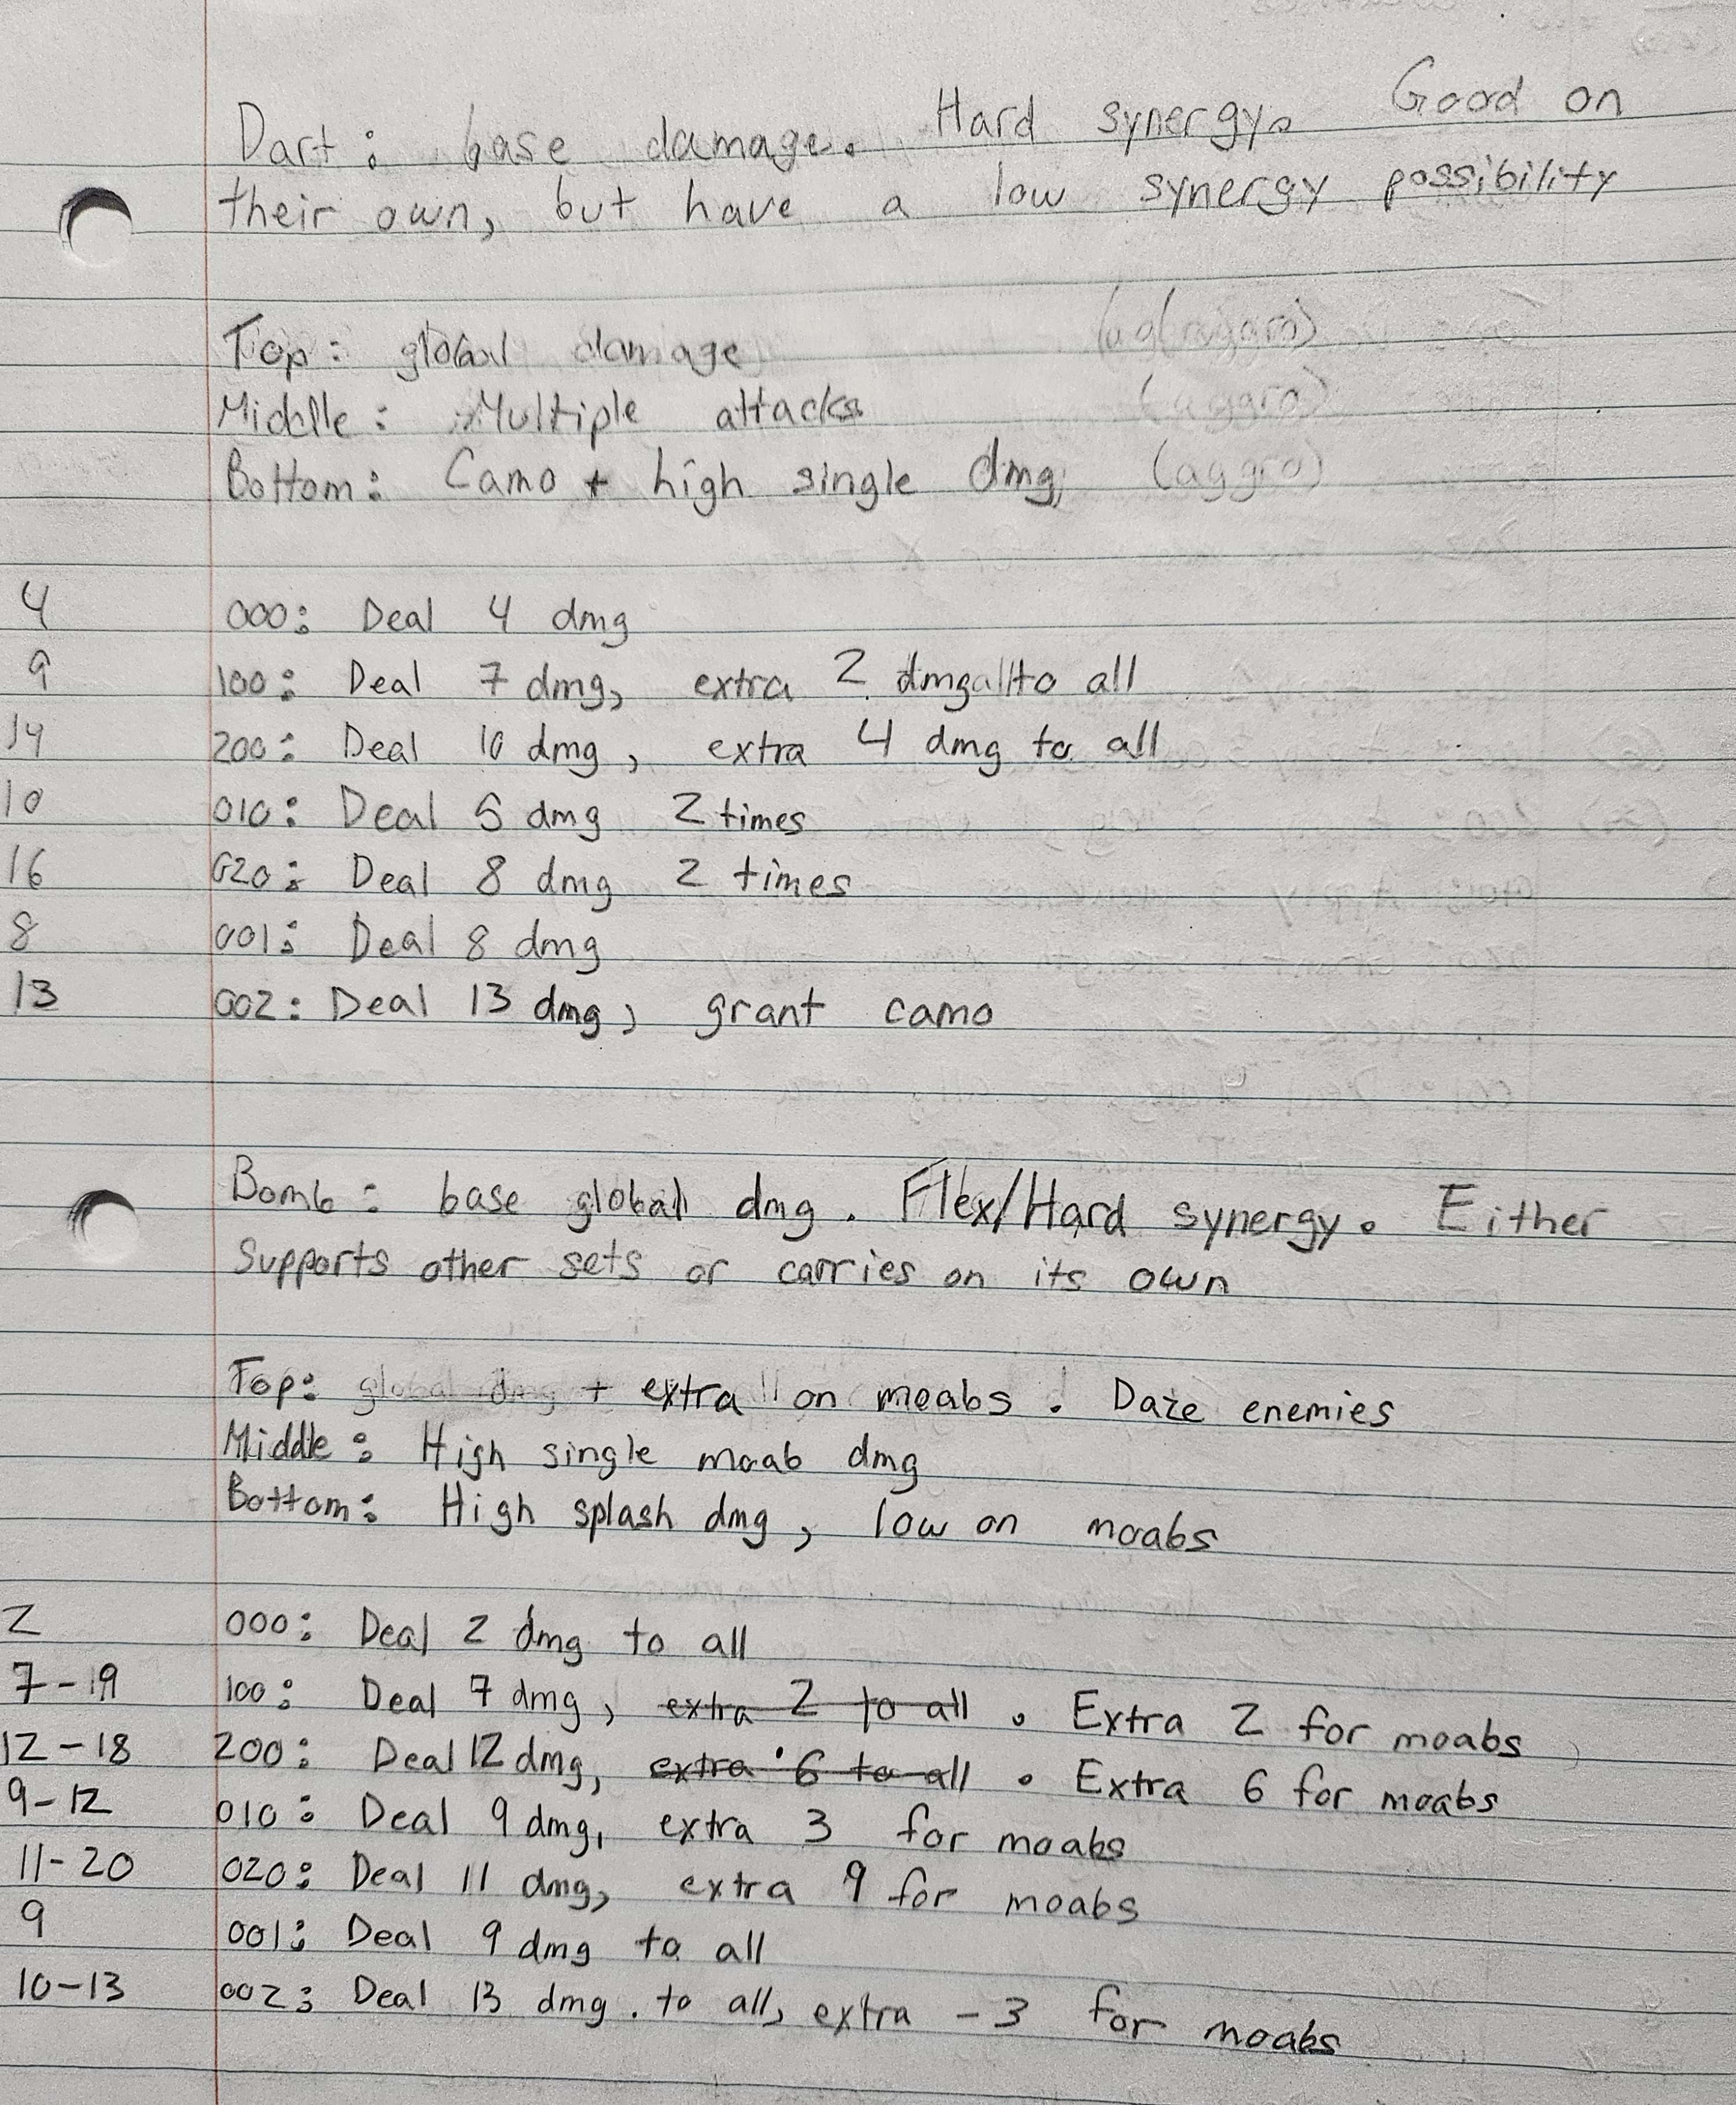 Dart: base damage. Hard synergy. Good on
their own, but have a low synergy possibility
Top: global damage (aggro)
Middle: Multiple attacks (aggro)
Bottom: Camo + high single dmg (aggro)
4 000: Deal 4 dmg
9 100: Deal 7 dmg, extra 2 dmg to all
14 200: Deal 10 dmg, extra 4 dmg to all
10 010: Deal 5 dmg 2 times
16 020: Deal 8 dmg 2 times
8 001: Deal 8 dmg
13 002: Deal 13 dmg, grant camo
Bomb: base global dmg. Flex/Hard synergy. Either
supports other sets or carries on its own
Top: global dmg + extra on moabs. Daze enemies
Middle: High single moab dmg
Bottom: High splash dmg, low on moabs
2 000: Deal 2 dmg to all
7-19 100: Deal 7 dmg, extra 2 to all. Extra 2 for moabs
12-18 200: Deal 12 dmg, extra 6 to all. Extra 6 for moabs
9-12 010: Deal 9 dmg, extra 3 for moabs
11-20 020: Deal 11 dmg, extra 9 for moabs
9 001: Deal 9 dmg to all
10-13 002: Deal 13 dmg. to all, extra -3 for moabs